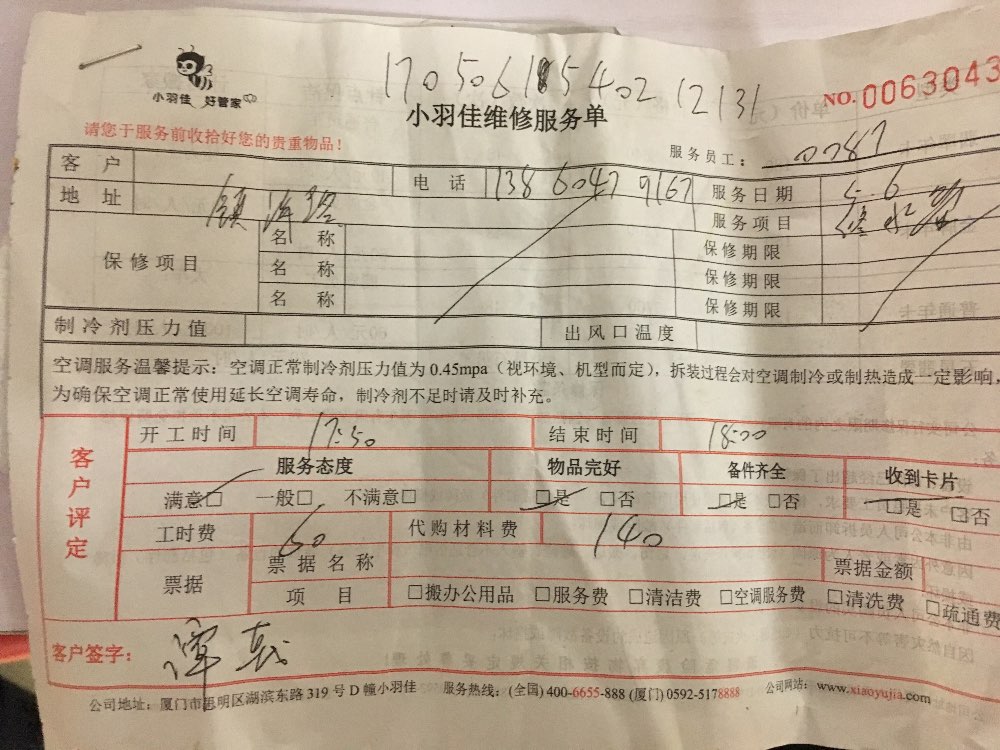 170506185402 12131
小羽佳 好管家
NO. 0063043
小羽佳维修服务单
请您于服务前收拾好您的贵重物品！
服务员工： 0087
客户 电话 13860479167 服务日期 5.6
地址 镇海路 服务项目 修水管
保修项目 名称 保修期限
名称 保修期限
名称 保修期限
制冷剂压力值 出风口温度
空调服务温馨提示：空调正常制冷剂压力值为 0.45mpa（视环境、机型而定），拆装过程会对空调制冷或制热造成一定影响，
为确保空调正常使用延长空调寿命，制冷剂不足时请及时补充。
客户评定
开工时间 17:50 结束时间 18:00
服务态度 物品完好 备件齐全 收到卡片
满意□ 一般□ 不满意□ □是 □否 □是 □否 □是 □否
工时费 60 代购材料费 140
票据 票据名称 票据金额
项目 □搬办公用品 □服务费 □清洁费 □空调服务费 □清洗费 □疏通费
客户签字：
公司地址：厦门市思明区湖滨东路 319 号 D 幢小羽佳 服务热线：(全国) 400-6655-888 (厦门) 0592-5178888 公司网站：www.xiaoyujia.com